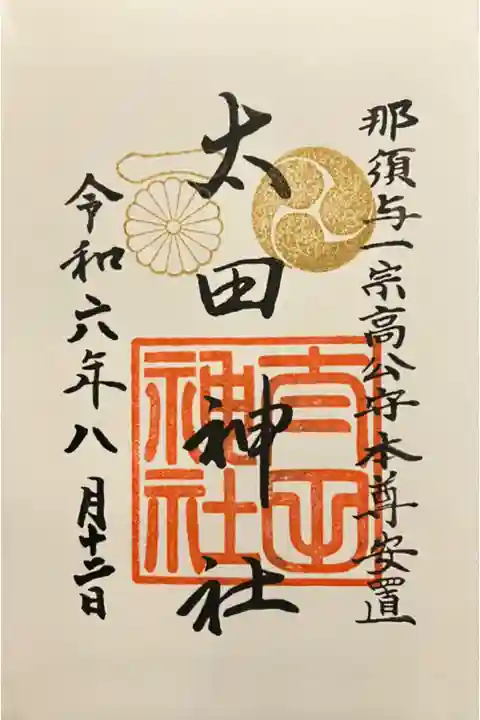 那須与一宗高公守本尊安置
太田神社
太田神社
令和六年八月十二日